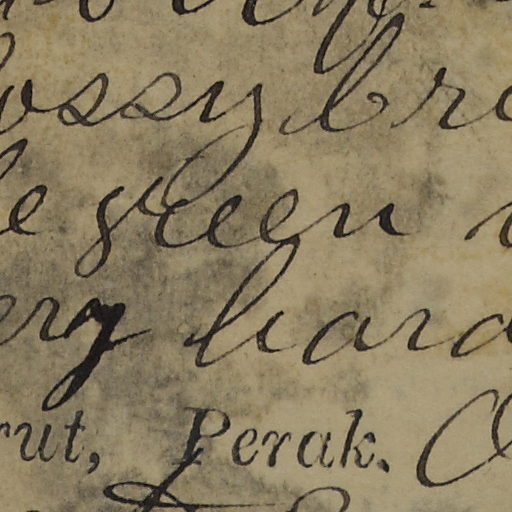 lossy bro
le green
ery hard
rut, Perak.